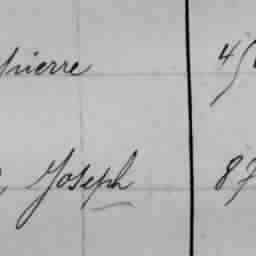 Pierre 45
Joseph 87